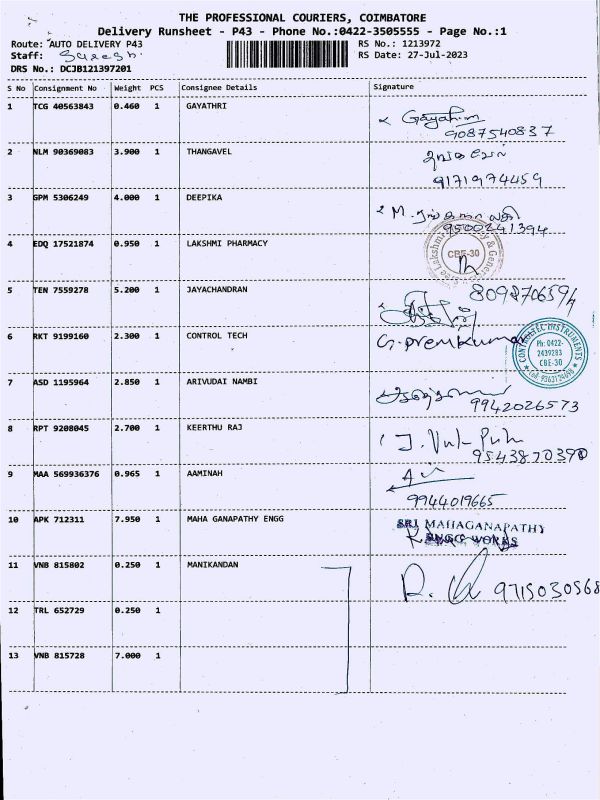 THE PROFESSIONAL COURIERS, COIMBATORE
Delivery Runsheet - P43 - Phone No.:0422-3505555 - Page No.:1
Route: AUTO DELIVERY P43
RS No.: 1213972
Staff: Suresh.
RS Date: 27-Jul-2023
DRS No.: DCJB121397201
S No Consignment No Weight PCS Consignee Details Signature
1 TCG 40563843 0.460 1 GAYATHRI
9087540837
2 NLM 90369083 3.900 1 THANGAVEL தங்கவேல்
9171974459
3 GPM 5306249 4.000 1 DEEPIKA
9500241394
4 EDQ 17521874 0.950 1 LAKSHMI PHARMACY
CBE-30
5 TEN 7559278 5.200 1 JAYACHANDRAN
6 RKT 9199160 2.300 1 CONTROL TECH G. Premkumar
CONTROLTEC INSTRUMENTS
Ph: 0422-
2439283
CBE-30
7 ASD 1195964 2.850 1 ARIVUDAI NAMBI
9942026573
8 RPT 9208045 2.700 1 KEERTHU RAJ
9543870390
9 MAA 569936376 0.965 1 AAMINAH
9944019665
10 APK 712311 7.950 1 MAHA GANAPATHY ENGG SRI MAHAGANAPATHY
ENGG WORKS
11 VNB 815802 0.250 1 MANIKANDAN
9715030568
12 TRL 652729 0.250 1
13 VNB 815728 7.000 1